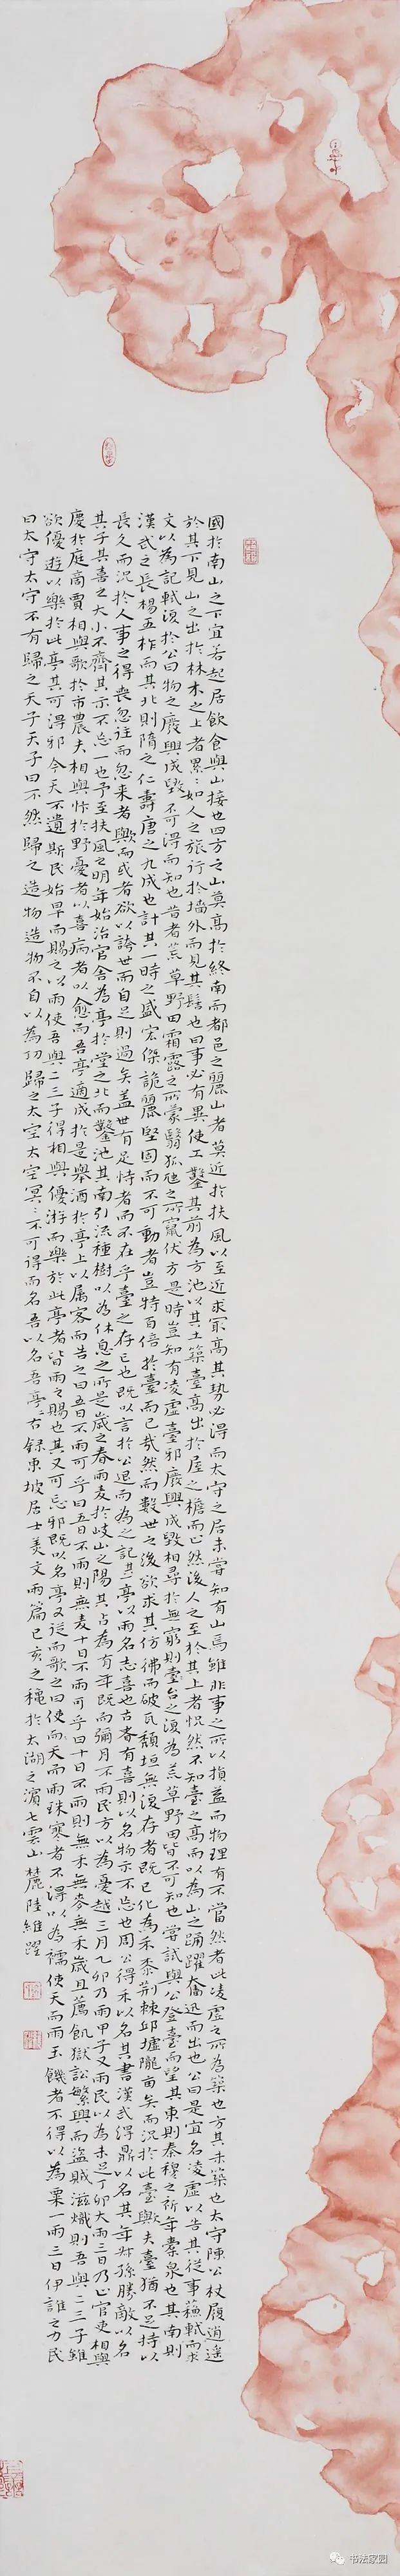 國於南山之下宜若起居飲食與山接也四方之山莫高於終南而都邑之麗山者莫近於扶風以至近求最高其勢必得而太守之居未嘗知有山焉雖非事之所以損益而物理有不當然者此凌虛之所為築也方其未築也太守陳公杖履逍遙
於其下見山之出於林木之上者累〻如人之旅行於墻外而見其髻也曰事必有異使工鑿其前為方池以其土築臺高出於屋之檐而止然後人之至於其上者怳然不知臺之高而以為山之踊躍奮迅而出也公曰是宜名凌虛以告其從事蘇軾而求
文以為記軾復於公曰物之廢興成毀不可得而知也昔者荒草野田霜露之所蒙翳狐虺之所竄伏方是時豈知有凌虛臺邪廢興成毀相尋於無窮則臺之復為荒草野田皆不可知也嘗試與公登臺而望其東則秦穆之祈年橐泉也其南則
漢武之長楊五柞而其北則隋之仁壽唐之九成也計其一時之盛宏傑詭麗堅固而不可動者豈特百倍於臺而已哉然而數世之後欲求其仿彿而破瓦頹垣無復存者既已化為禾黍荊棘邱墟隴畝矣而況於此臺歟夫臺猶不足恃以
長久而況於人事之得喪忽往而忽來者歟而或者欲以誇世而自足則過矣蓋世有足恃者而不在乎臺之存亡也既以言於公退而為之記其二亭以雨名志喜也古者有喜則以名物示不忘也周公得禾以名其書漢武得鼎以名其年叔孫勝敵以名
其子其喜之大小不齊其示不忘一也予至扶風之明年始治官舍為亭於堂之北而鑿池其南引流種樹以為休息之所是歲之春雨麥於岐山之陽其占為有年既而彌月不雨民方以為憂越三月乙卯乃雨甲子又雨民以為未足丁卯大雨三日乃止官吏相與
慶於庭商賈相與歌於市農夫相與忭於野憂者以喜病者以愈而吾亭適成於是舉酒於亭上以屬客而告之曰五日不雨可乎曰五日不雨則無麥十日不雨可乎曰十日不雨則無禾無麥無禾歲且薦飢獄訟繁興而盜賊滋熾則吾與二三子雖
欲優遊以樂於此亭其可得邪今天不遺斯民始旱而賜之以雨使吾與二三子得相與優游而樂於此亭者皆雨之賜也其又可忘邪既以名亭又從而歌之曰使天而雨珠寒者不得以為襦使天而雨玉饑者不得以為粟一雨三日伊誰之力民
曰太守太守不有歸之天子天子曰不然歸之造物造物不自以為功歸之太空太空冥〻不可得而名吾以名吾亭右錄東坡居士美文兩篇己亥之穐於太湖之濱七雲山麓陸維躍
书法家园